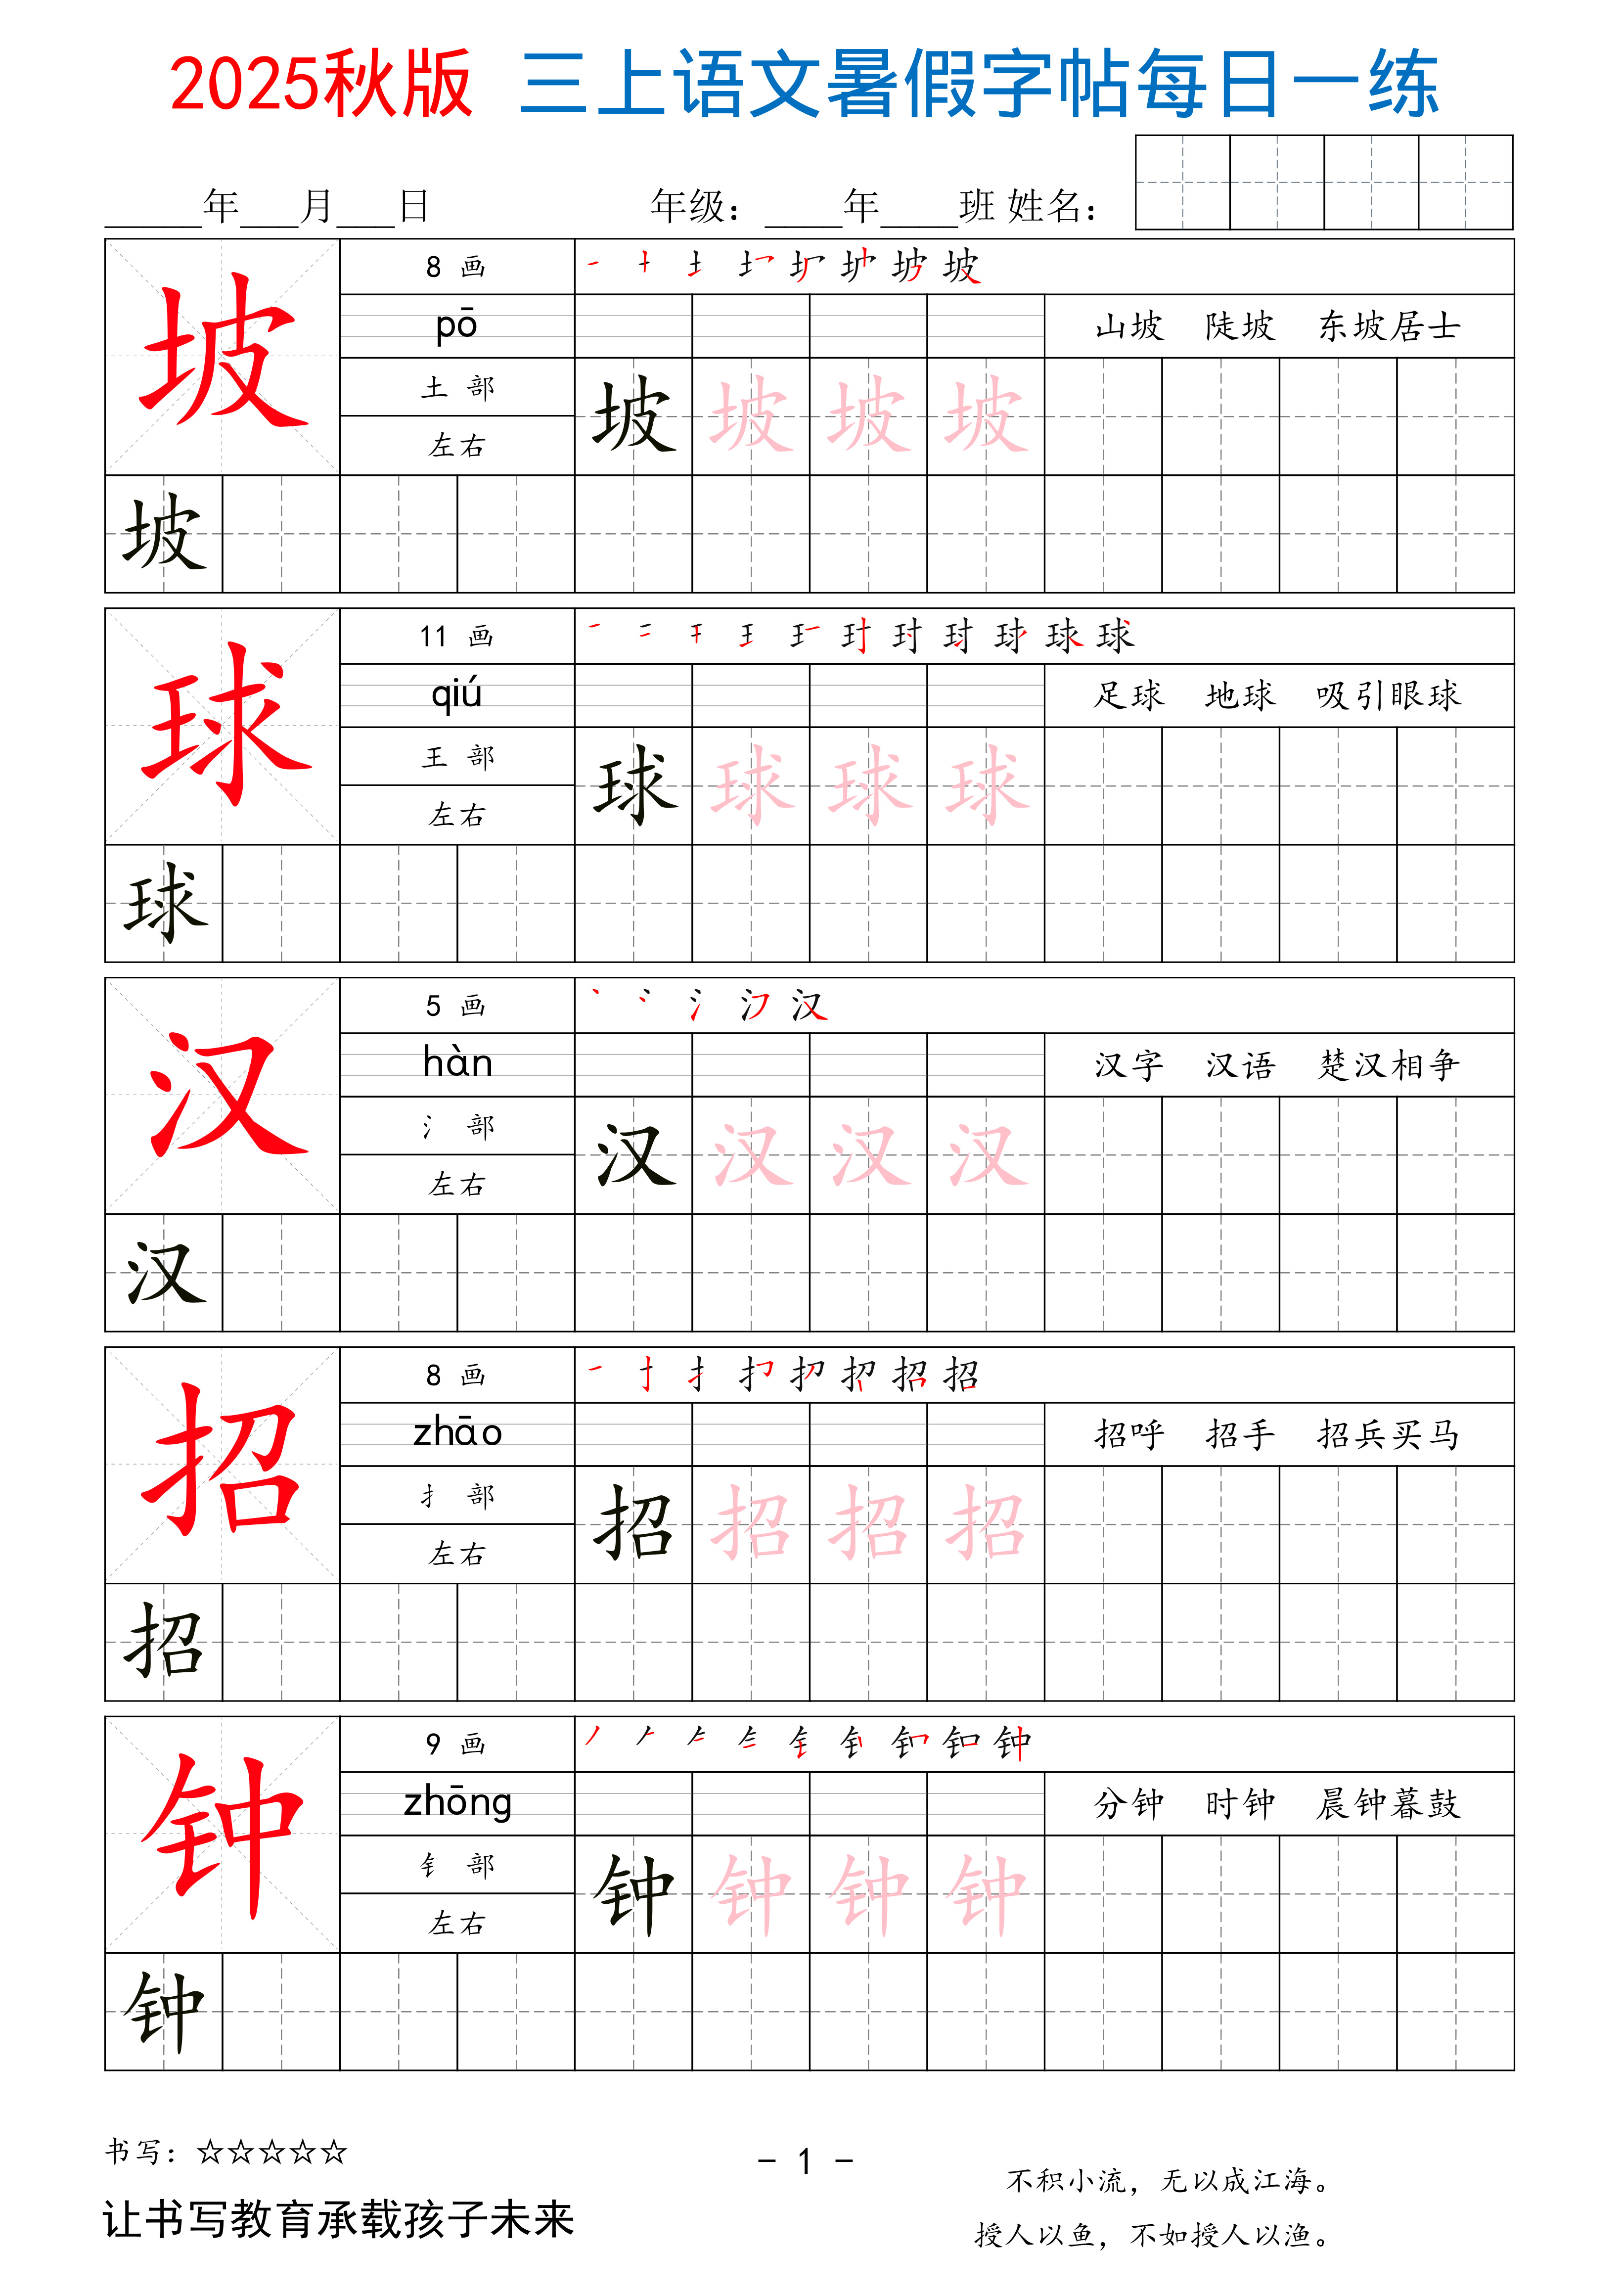 2025秋版 三上语文暑假字帖每日一练
_____年___月___日 年级：____年____班 姓名：
坡 8 画
pō 山坡 陡坡 东坡居士
土 部 坡 坡 坡 坡
左右
坡
球 11 画 球
qiú 足球 地球 吸引眼球
王 部 球 球 球 球
左右
球
汉 5 画 汉
hàn 汉字 汉语 楚汉相争
氵 部 汉 汉 汉 汉
左右
汉
招 8 画 招
zhāo 招呼 招手 招兵买马
扌 部 招 招 招 招
左右
招
钟 9 画 钟
zhōng 分钟 时钟 晨钟暮鼓
钅 部 钟 钟 钟 钟
左右
钟
书写：☆☆☆☆☆
- 1 -
不积小流，无以成江海。
让书写教育承载孩子未来
授人以鱼，不如授人以渔。